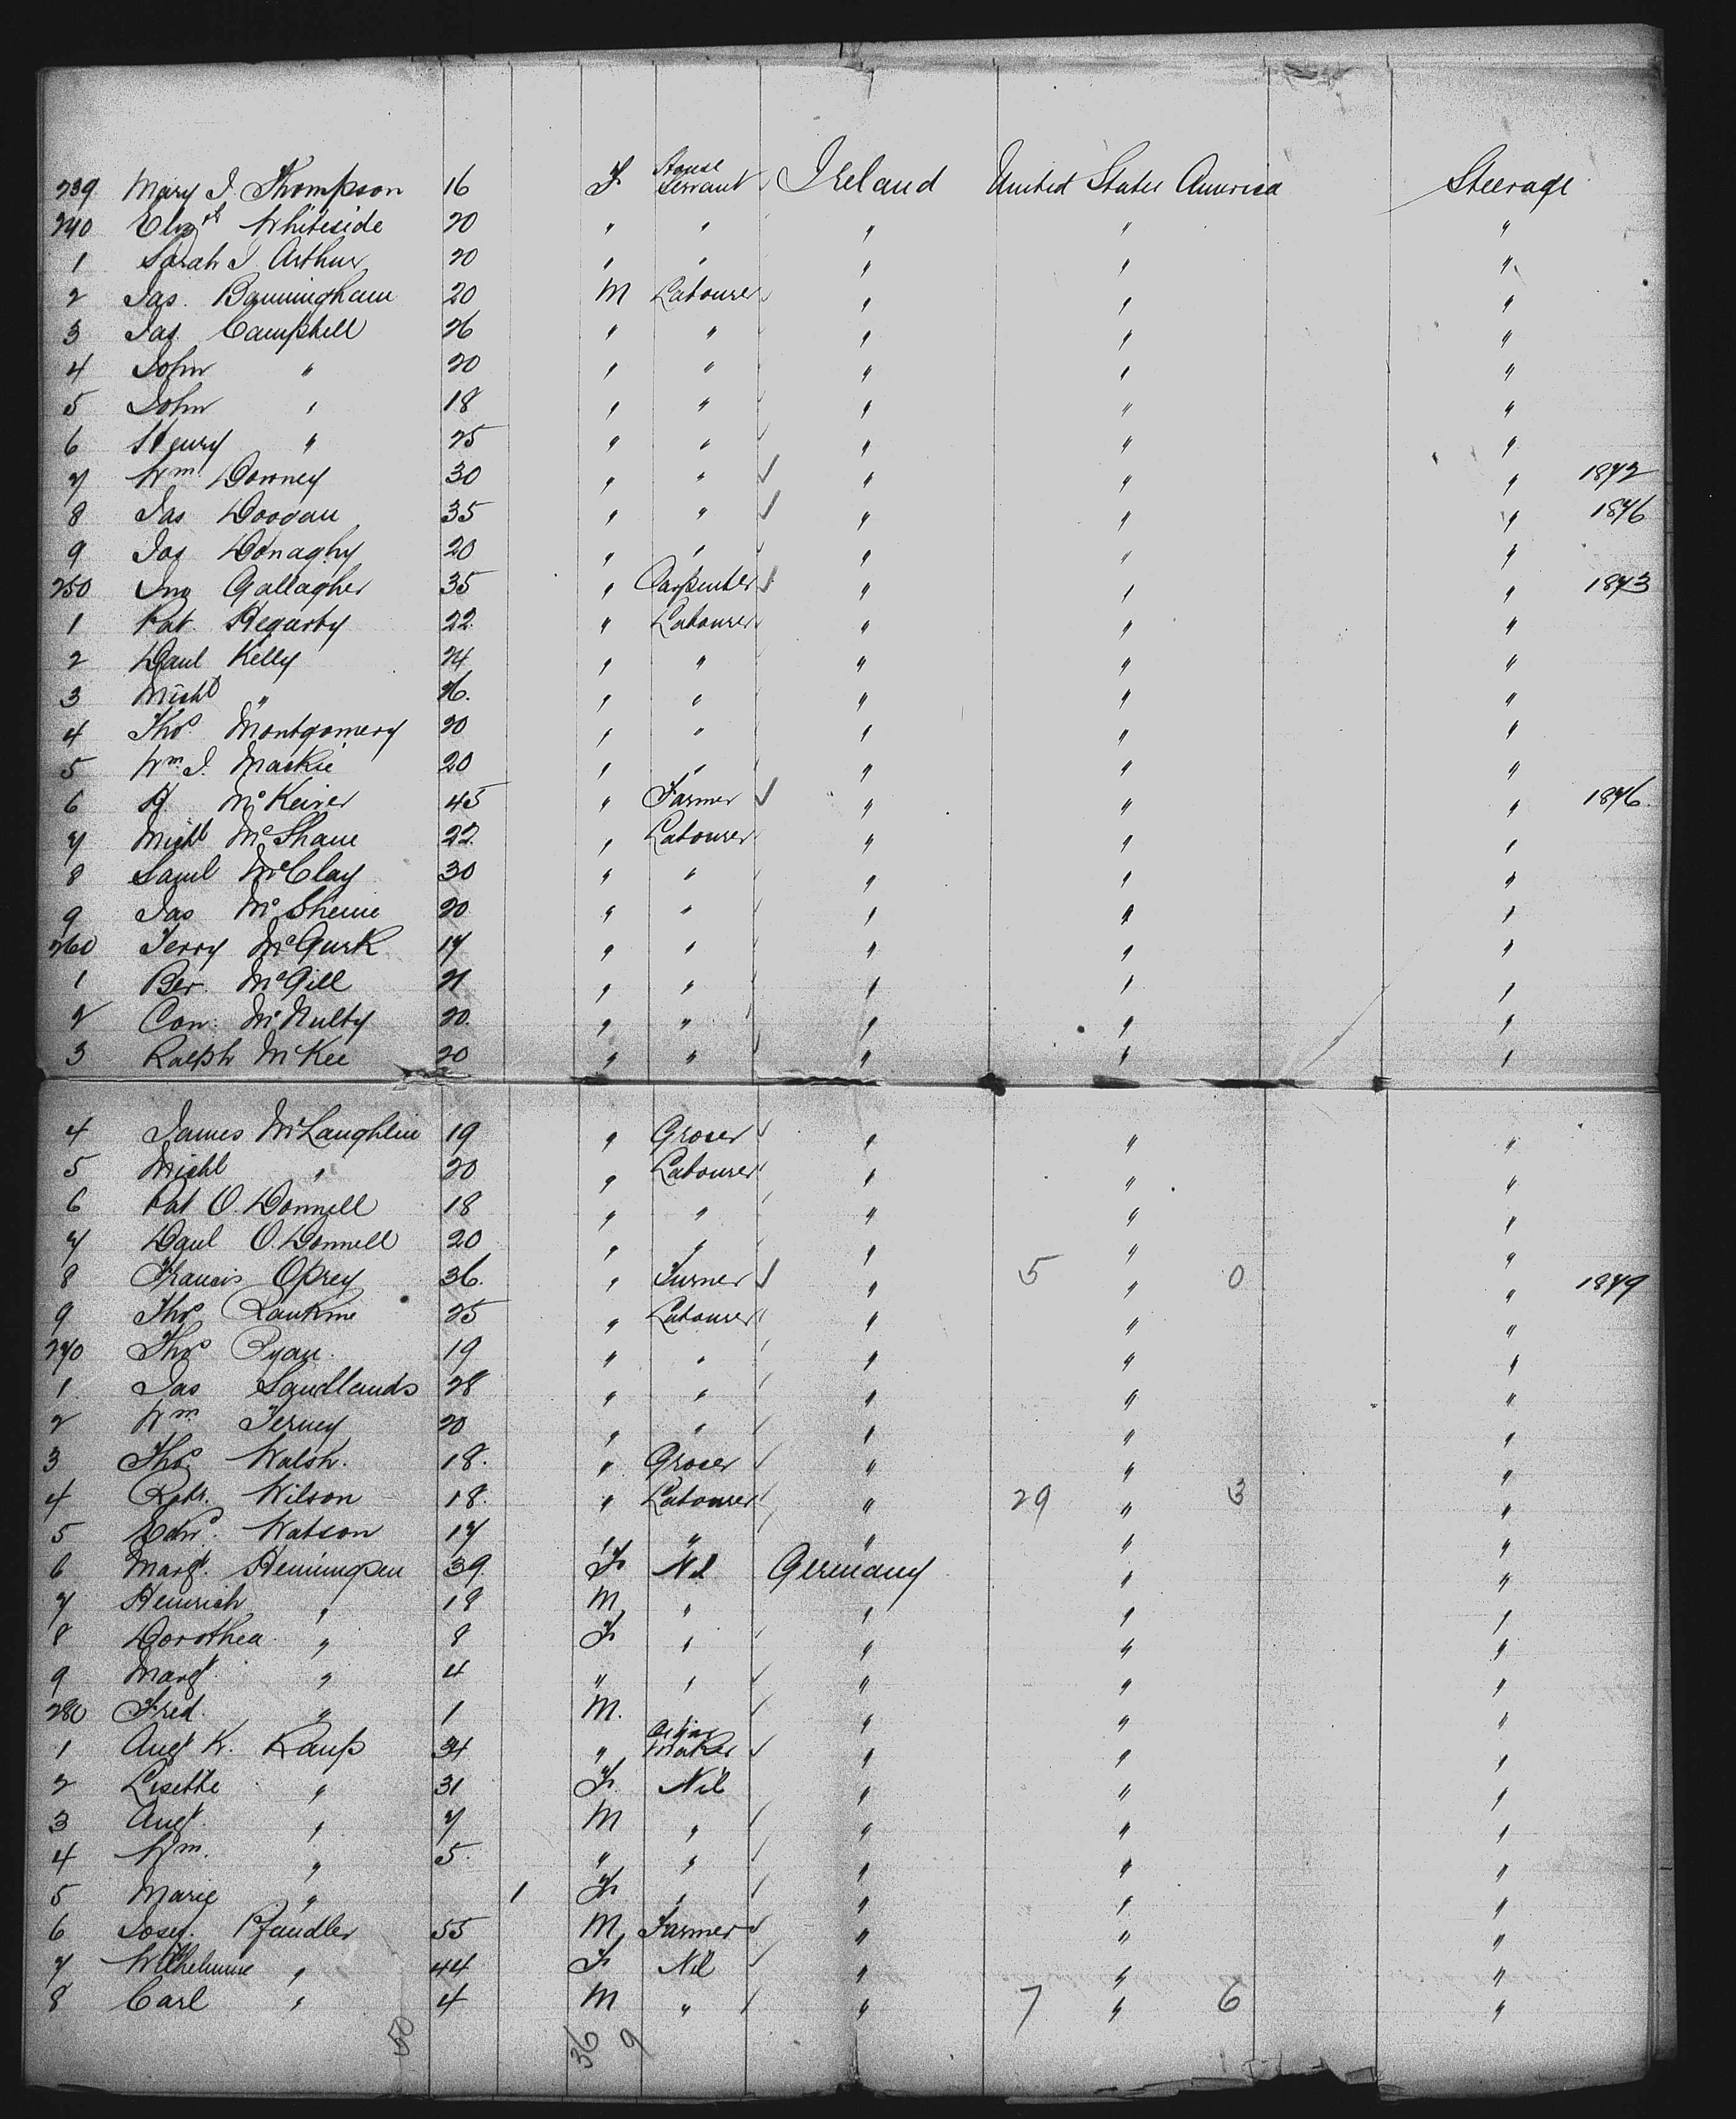 239 Mary J. Thompson 16 F House Servant Ireland United States America Steerage
240 Elizth Whiteside 20 " " " " "
1 Sarah J Arthur 20 " " " " "
2 Jas. 20 M Labourer " " "
3 Jas. Campbell 26 " " " " "
4 John " 20 " " " " "
5 John " 18 " " " " "
6 Henry " 25 " " " " "
7 Wm. Downey 30 " " " " " 1872
8 Jas 35 " " " " " 1876
9 Jas Donaghy 20 " " " " "
250 Jno Gallagher 35 " Carpenter " " " 1873
1 Pat. Hegarty 22 " Labourer " " "
2 Danl Kelly 24 " " " " "
3 Michl " 26. " " " " "
4 Thos. Montgomery 20 " " " " "
5 Wm. J. Mackie 20 " " " " "
6 H McKeiver 45 " Farmer " " " 1876
7 Michl McShane 22. " Labourer " " "
8 Saml McClay 30 " " " " "
9 Jas 20 " " " " "
260 Terry McGurk 17 " " " " "
1 Ber. McGill 21 " " " " "
2 Con. McNulty 20. " " " " "
3 Ralph McKee 20 " " " " "
4 James McLaughlin 19 " Grocer " " "
5 Michl " 20 " Labourer " " "
6 Pat O. Donnell 18 " " " " "
7 Danl O. Donnell 20 " " " " "
8 Francis Oprey 36. " Turner " 5 " 0 " 1879
9 Thos Rankine 25 " Labourer " " "
270 Thos Ryan. 19 " " " " "
1 Jas Sandlands 28 " " " " "
2 Wm Terney 20 " " " " "
3 Thos. Walsh. 18. " Grocer " " "
4 Robt. Wilson 18. " Labourer " 29 " 3 "
5 Edwd. Watson 17 " " " " "
6 Margt. Hemmingsen 39. F Nil Germany " "
7 Heinrich " 18 M " " " "
8 Dorothea " 8 F " " " "
9 Margt " 4 " " " " "
280 Fred. " 1 M. " " "
1 Augt K. Kaup 34 " Cigar Maker " " "
2 Lisette " 31 F. Nil " " "
3 Augt. " 7 M " " " "
4 Wm. " 5. " " " " "
5 Marie " 1 F " " " "
6 Josef. Pfandler 55 M Farmer " " "
7 Wilhelmine " 44 F Nil " " "
8 Carl " 4 M " " 7 " 6 "
50 36 9